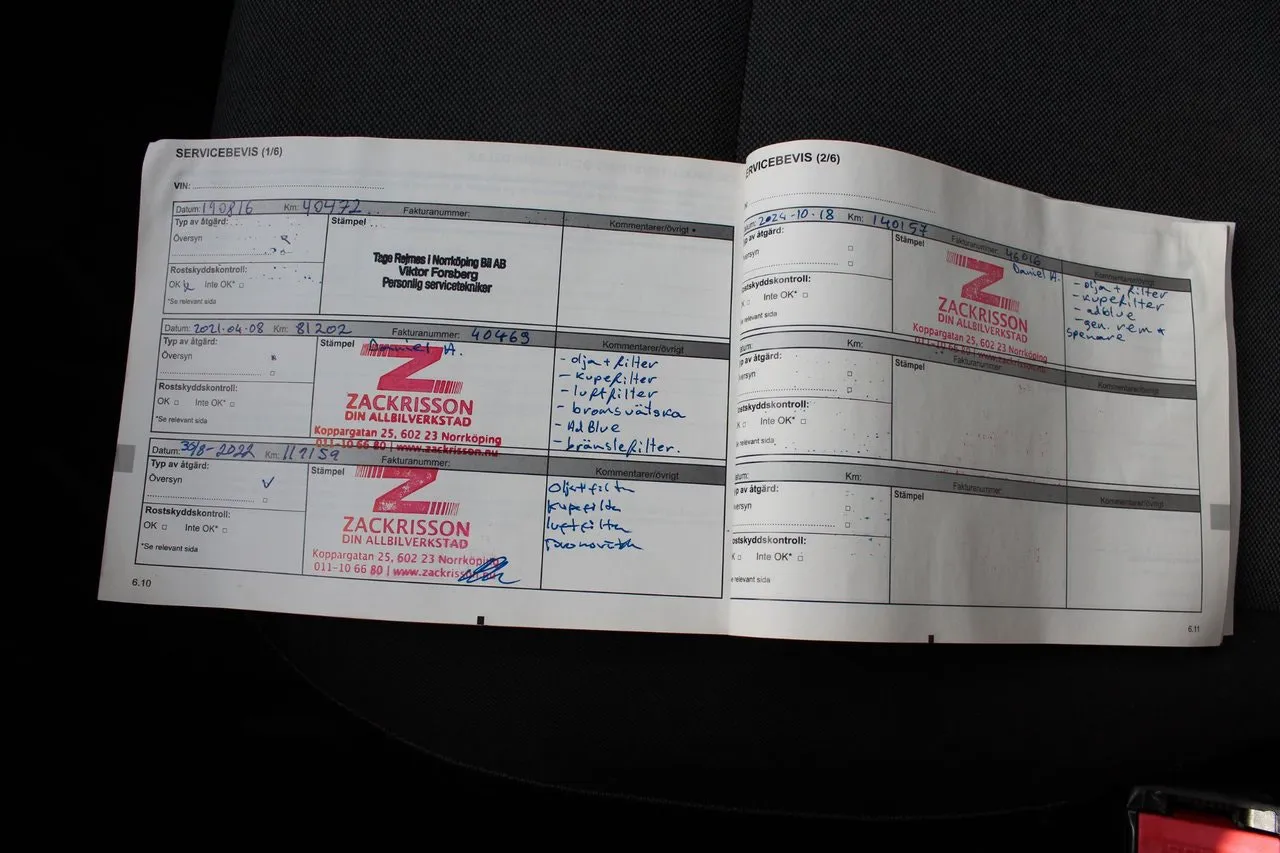 SERVICEBEVIS (1/6)
VIN:
Datum: 190816 Km: 40472 Fakturanummer: Kommentarer/övrigt
Typ av åtgärd:
Översyn
Rostskyddskontroll:
OK Inte OK*
*Se relevant sida
Stämpel
Tage Rejmes i Norrköping Bil AB
Viktor Forsberg
Personlig servicetekniker
Datum: 2021-04-08 Km: 81202 Fakturanummer: 40469 Kommentarer/övrigt
Typ av åtgärd:
Översyn
Rostskyddskontroll:
OK Inte OK*
*Se relevant sida
Stämpel Daniel A.
Z
ZACKRISSON
DIN ALLBILVERKSTAD
Koppargatan 25, 602 23 Norrköping
011-10 66 80 | www.zackrisson.nu
- olja + filter
- kupefilter
- luftfilter
- bromsvätska
- AdBlue
- bränslefilter.
Datum: 30/8-2022 Km: 117159 Fakturanummer: Kommentarer/övrigt
Typ av åtgärd:
Översyn
Rostskyddskontroll:
OK Inte OK*
*Se relevant sida
Stämpel
Z
ZACKRISSON
DIN ALLBILVERKSTAD
Koppargatan 25, 602 23 Norrköping
011-10 66 80 | www.zackrisson.nu
Olja+filter
kupefilter
luftfilter
6.10
ERVICEBEVIS (2/6)
2024-10-18 Km: 140157 Fakturanummer: 46016 Kommentarer/övrigt
yp av åtgärd:
ersyn
ostskyddskontroll:
K Inte OK*
e relevant sida
Stämpel Daniel A.
Z
ZACKRISSON
DIN ALLBILVERKSTAD
Koppargatan 25, 602 23 Norrköping
011-10 66 80 | www.zackrisson.nu
- olja + filter
- kupefilter
- adblue
- gen. rem +
spännare
atum: Km: Fakturanummer: Kommentarer/övrigt
yp av åtgärd:
ersyn
ostskyddskontroll:
K Inte OK*
Se relevant sida
Stämpel
atum: Km: Fakturanummer: Kommentarer/övrigt
yp av åtgärd:
ersyn
ostskyddskontroll:
K Inte OK*
e relevant sida
Stämpel
6.11